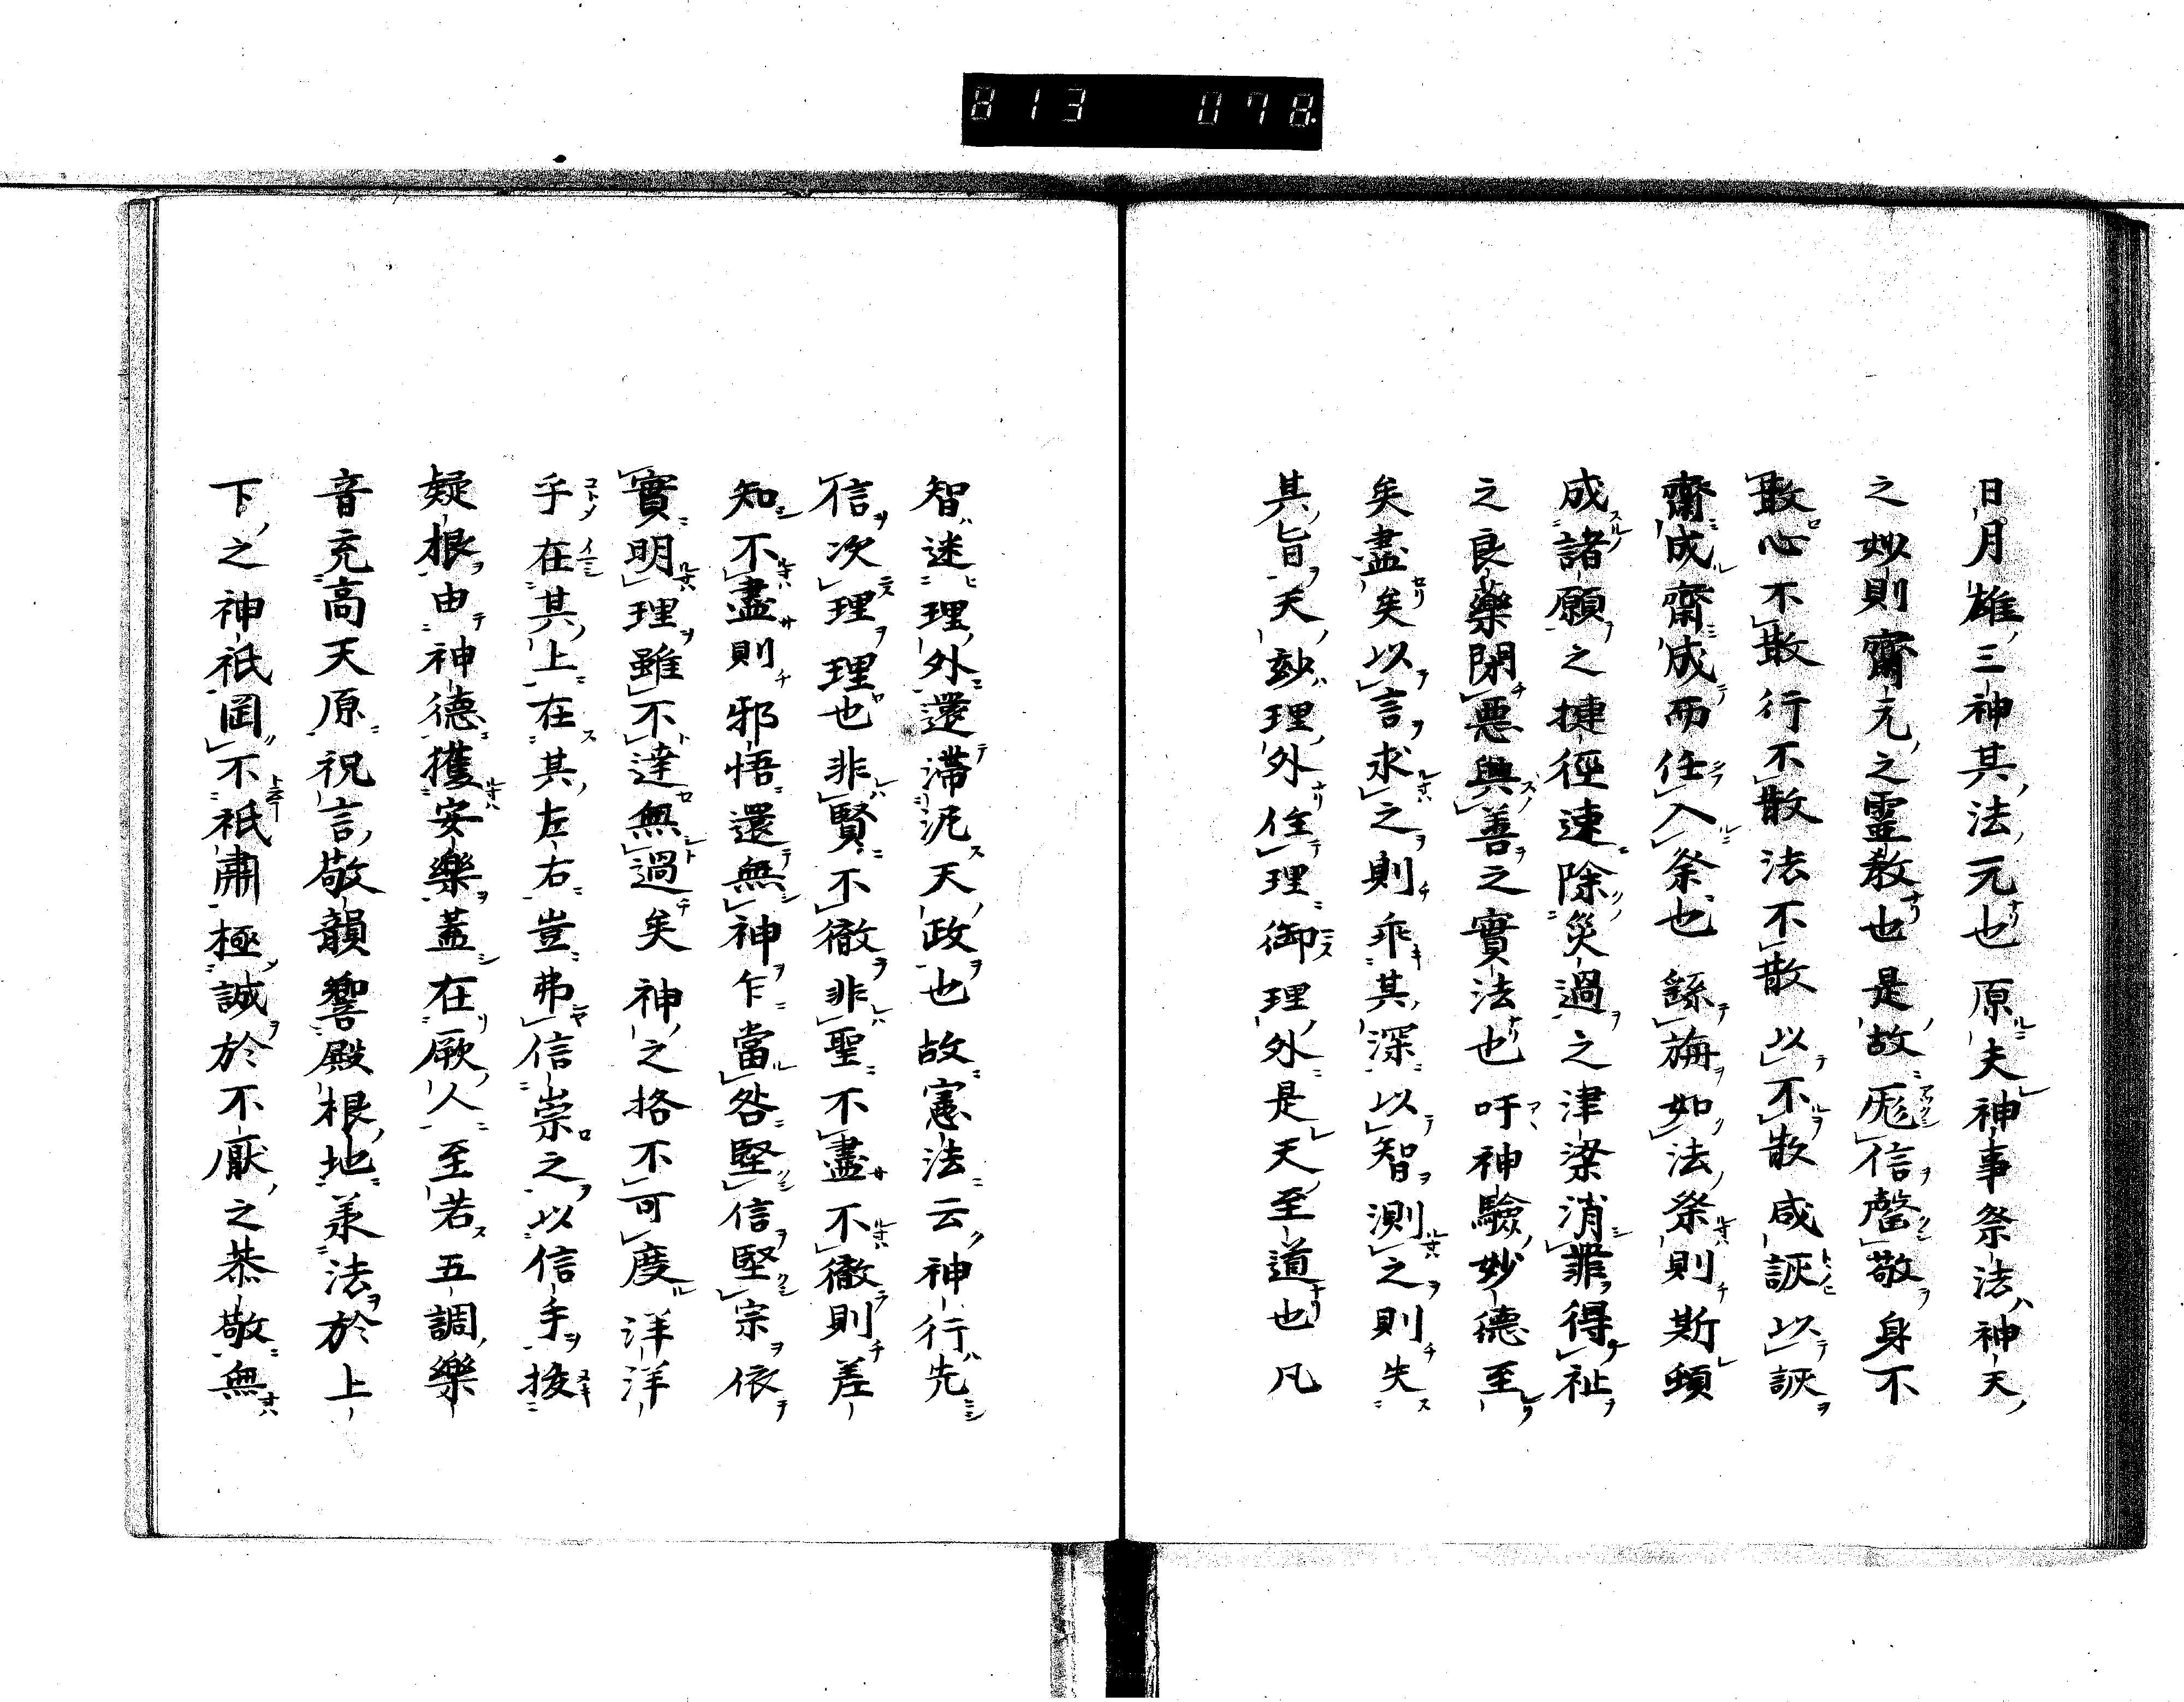 813 078
日月雄三神其法元也原夫神事祭法神天
之妙則齋元之霊教也是故厖信罄敬身不
散心不散行不散法不散以不散咸誠以誠
齋成齋成而任入祭也繇斾如法祭則斯須
成諸願之捷徑速除災過之津梁消罪得祉
之良藥閉悪與善之實法也吁神驗妙德至
矣盡矣以言求之則乖其深以智測之則失
其旨天玅理外住理御理外是天至道也凡
智迷理外還滯泥天政也故憲法云神行先
信次理理也非賢不徹非聖不盡不徹則差
知不盡則邪悟還無神乍當咎堅信堅宗依
實明理雖不達無過矣神之格不可度洋洋
乎在其上在其左右豈弗信崇之以信手拔
疑根由神德獲安樂蓋在厥人至若五調樂
音充高天原祝言敬韻響殿根地羕法於上
下之神祇罔不祇肅極誠於不厭之恭敬無